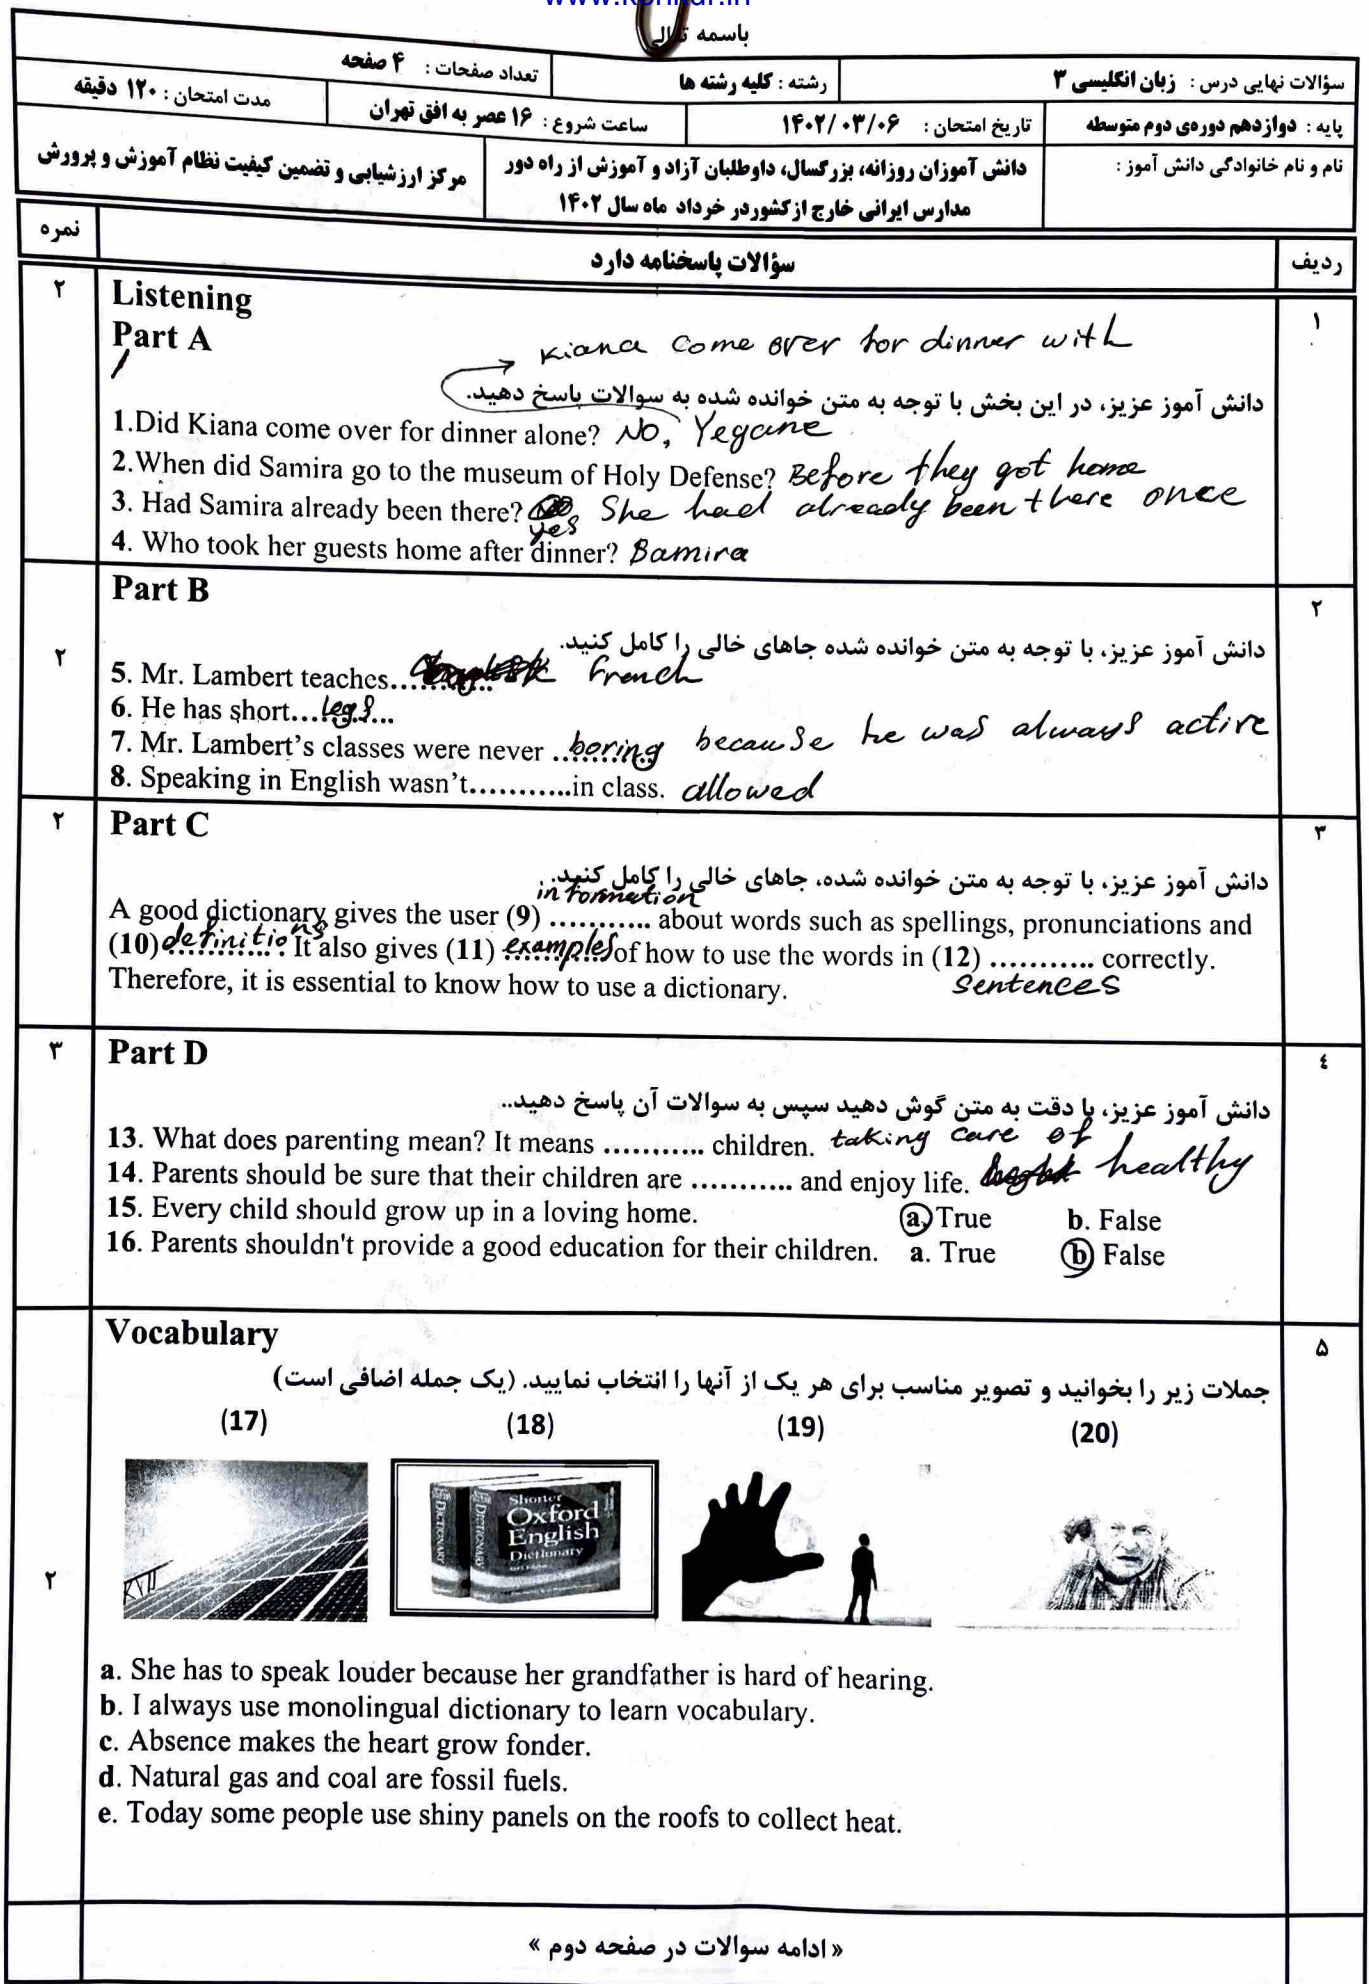 www.konkur.in
باسمه تعالی
سؤالات نهایی درس : زبان انگلیسی ۳
رشته : کلیه رشته ها
تعداد صفحات : ۴ صفحه
پایه : دوازدهم دوره‌ی دوم متوسطه
تاریخ امتحان : ۱۴۰۲/۰۳/۰۶
ساعت شروع : ۱۶ عصر به افق تهران
مدت امتحان : ۱۲۰ دقیقه
نام و نام خانوادگی دانش آموز :
دانش آموزان روزانه، بزرگسال، داوطلبان آزاد و آموزش از راه دور
مدارس ایرانی خارج ازکشوردر خرداد ماه سال ۱۴۰۲
مرکز ارزشیابی و تضمین کیفیت نظام آموزش و پرورش
ردیف
سؤالات پاسخنامه دارد
نمره
۱
۲
Listening
Part A
Kiana come over for dinner with
دانش آموز عزیز، در این بخش با توجه به متن خوانده شده به سوالات پاسخ دهید.
1.Did Kiana come over for dinner alone? No, Yegane
2.When did Samira go to the museum of Holy Defense? Before they got home
3. Had Samira already been there? yes She had already been there once
4. Who took her guests home after dinner? Bamira
۲
۲
Part B
دانش آموز عزیز، با توجه به متن خوانده شده جاهای خالی را کامل کنید.
5. Mr. Lambert teaches........... French
6. He has short...legs...
7. Mr. Lambert's classes were never ...boring because he was always active
8. Speaking in English wasn't...........in class. allowed
۳
۲
Part C
دانش آموز عزیز، با توجه به متن خوانده شده، جاهای خالی را کامل کنید.
information
A good dictionary gives the user (9) ........... about words such as spellings, pronunciations and
(10) definitions. It also gives (11) examples of how to use the words in (12) ........... correctly.
Therefore, it is essential to know how to use a dictionary. Sentences
٤
۳
Part D
دانش آموز عزیز، با دقت به متن گوش دهید سپس به سوالات آن پاسخ دهید..
13. What does parenting mean? It means ........... children. taking care of
14. Parents should be sure that their children are ........... and enjoy life. healthy
15. Every child should grow up in a loving home. a. True b. False
16. Parents shouldn't provide a good education for their children. a. True b. False
۵
۲
Vocabulary
جملات زیر را بخوانید و تصویر مناسب برای هر یک از آنها را انتخاب نمایید. (یک جمله اضافی است)
(17) (18) (19) (20)
DICTIONARY
DICTIONARY
Shorter
Oxford
English
Dictionary
a. She has to speak louder because her grandfather is hard of hearing.
b. I always use monolingual dictionary to learn vocabulary.
c. Absence makes the heart grow fonder.
d. Natural gas and coal are fossil fuels.
e. Today some people use shiny panels on the roofs to collect heat.
« ادامه سوالات در صفحه دوم »